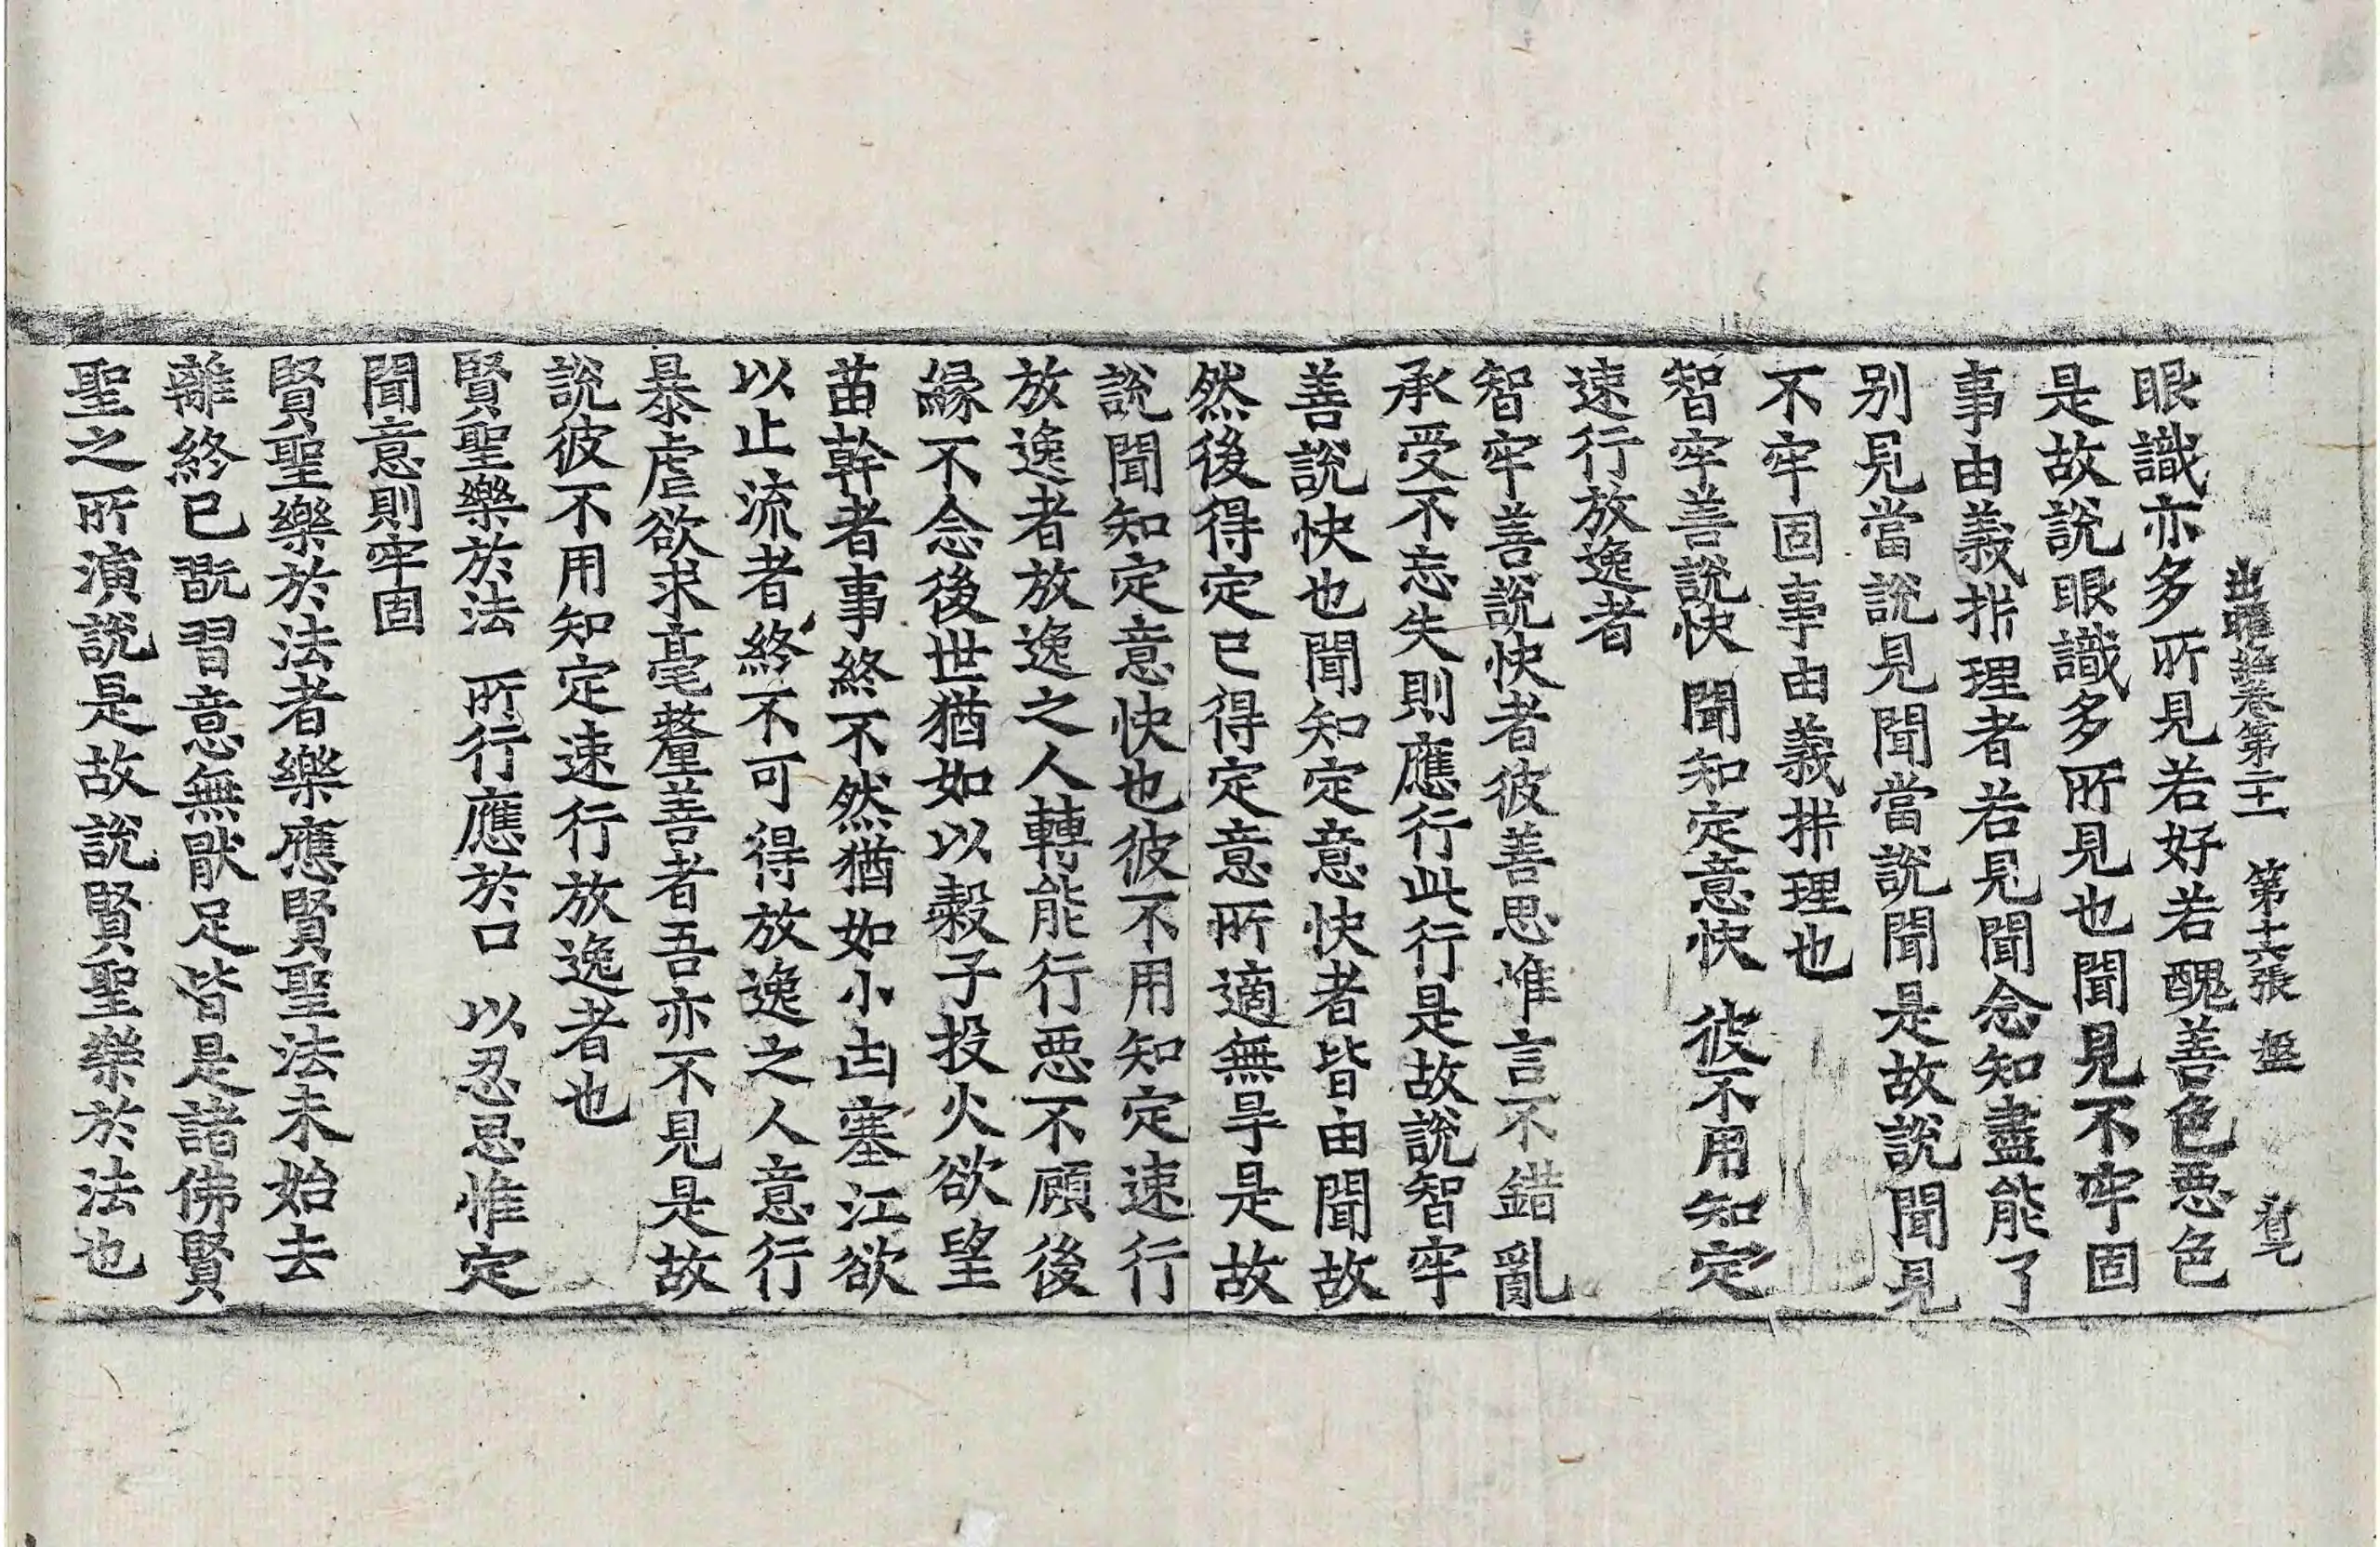 出曜經卷第二十一 第十六張 盤
眼識亦多所見若好若醜善色悪色
是故説眼識多所見也聞見不牢固
事由義析理者若見聞念知盡能了
别見當說見聞當說聞是故說聞見
不牢固事由義析理也
智牢善說快 聞知定意快 彼不用知定
速行放逸者
智牢善說快者彼善思惟言不錯亂
承受不忘失則應行此行是故說智牢
善說快也聞知定意快者皆由聞故
然後得定已得定意所適無㝵是故
說聞知定意快也彼不用知定速行
放逸者放逸之人轉能行悪不顧後
緣不念後世猶如以糓子投火欲望
苗幹者事終不然猶如小凷塞江欲
以止流者終不可得放逸之人意行
暴虐欲求毫釐善者吾亦不見是故
說彼不用知定速行放逸者也
賢聖樂於法 所行應於口 以忍思惟定
聞意則牢固
賢聖樂於法者樂應賢聖法未始去
離終已翫習意無猒足皆是諸佛賢
聖之所演說是故說賢聖樂於法也